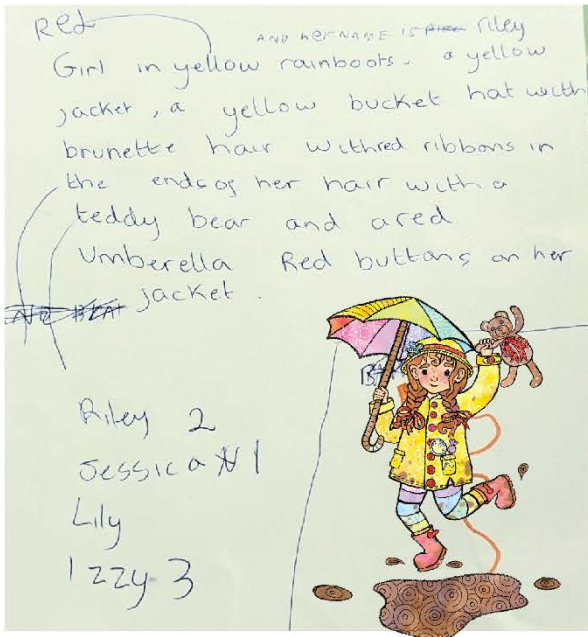 Red
AND HER NAME IS riley
Girl in yellow rainboots. a yellow
jacket, a yellow bucket hat with
brunette hair withred ribbons in
the ends of her hair with a
teddy bear and ared
Umberella Red buttons on her
jacket.
Riley 2
Jessica 1
Lily
Izzy 3